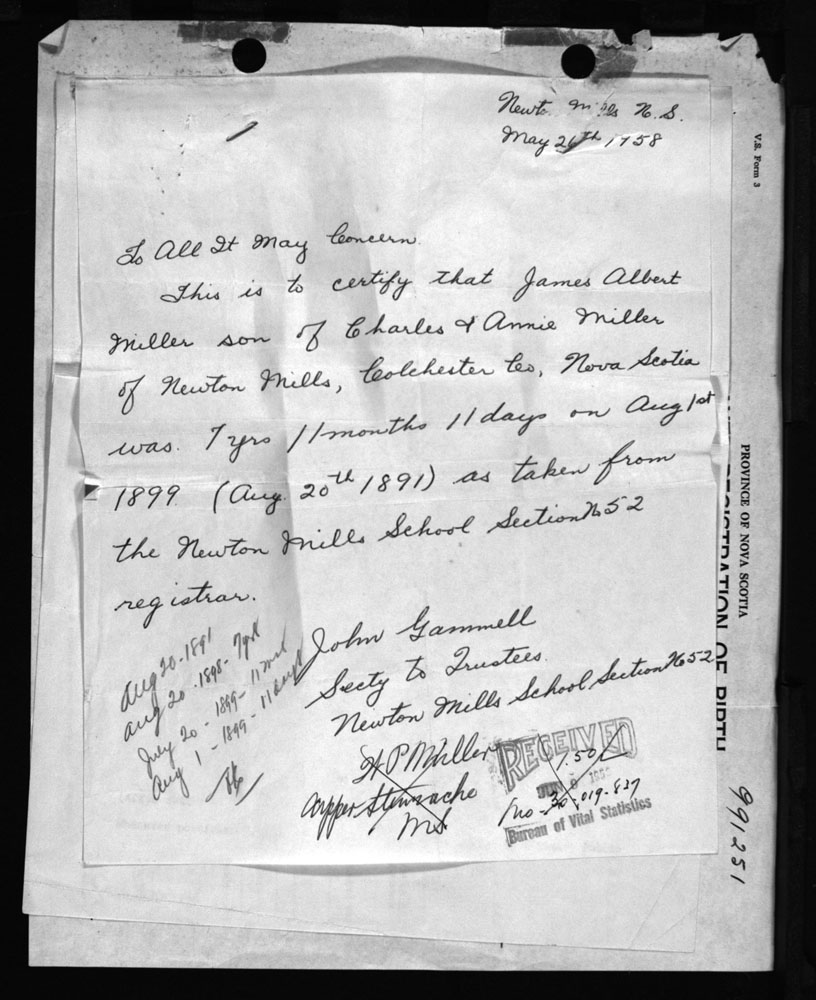 Newto Mills N.S.
May 26th 1958
To All It May Concern.
This is to certify that James Albert
Miller son of Charles & Annie Miller
of Newton Mills, Colchester Co, Nova Scotia
was. 7 yrs 11 months 11 days on Aug 1st
1899 (Aug. 20th 1891) as taken from
the Newton Mills School Section No 52
registrar.
John Gammell
Secty to Trustees.
Newton Mills School Section No 52
Aug 20-1891
Aug 20-1898-7yrs
July 20-1899-11 mos
Aug 1-1899-11 days
H P Miller
Upper Stewiacke
N.S.
RECEIVED
1.50
JUN
No 30-019-827
Bureau of Vital Statistics
V.S. Form 3
PROVINCE OF NOVA SCOTIA
REGISTRATION OF BIRTH
991251